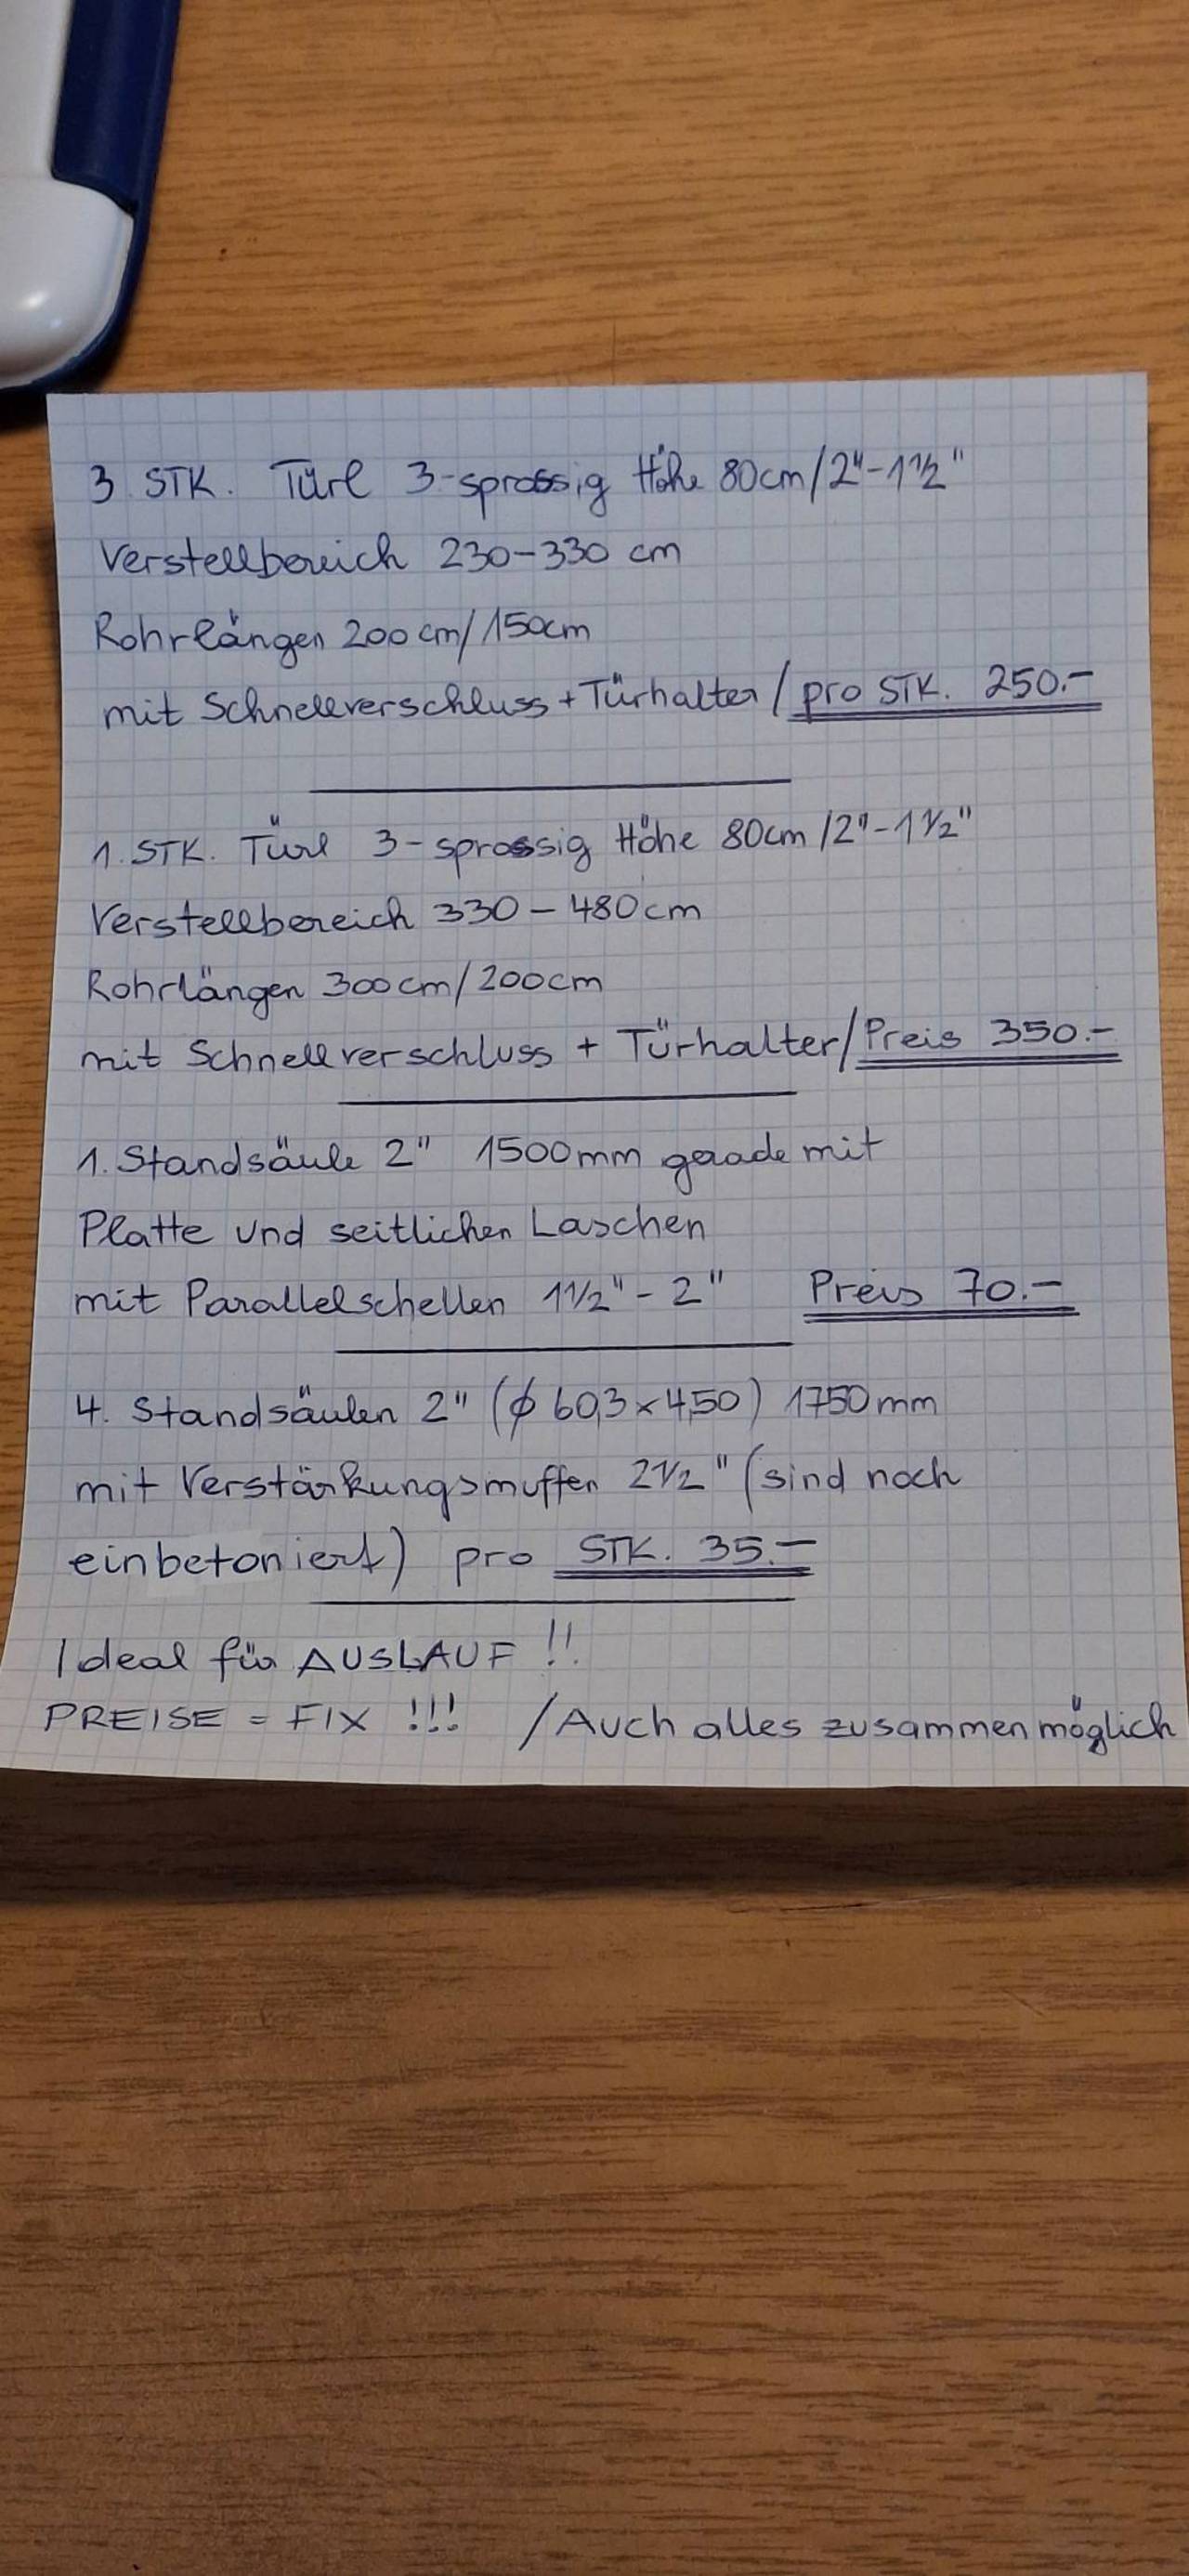 3 STK. Türl 3-sprossig Höhe 80cm/2"-1½"
Verstellbereich 230-330 cm
Rohrlängen 200cm/150cm
mit Schnellverschluss + Türhalter / pro STK. 250.-
1. STK. Türl 3-sprossig Höhe 80cm /2"-1½"
Verstellbereich 330-480cm
Rohrlängen 300cm/200cm
mit Schnellverschluss + Türhalter/Preis 350.-
1. Standsäule 2" 1500mm gerade mit
Platte und seitlichen Laschen
mit Parallelschellen 1½"-2" Preis 70.-
4. Standsäulen 2" (ϕ 60,3 x 4,50) 1750mm
mit Verstärkungsmuffen 2½" (sind noch
einbetoniert) pro STK. 35.-
Ideal für AUSLAUF !!
PREISE = FIX !!! / Auch alles zusammen möglich